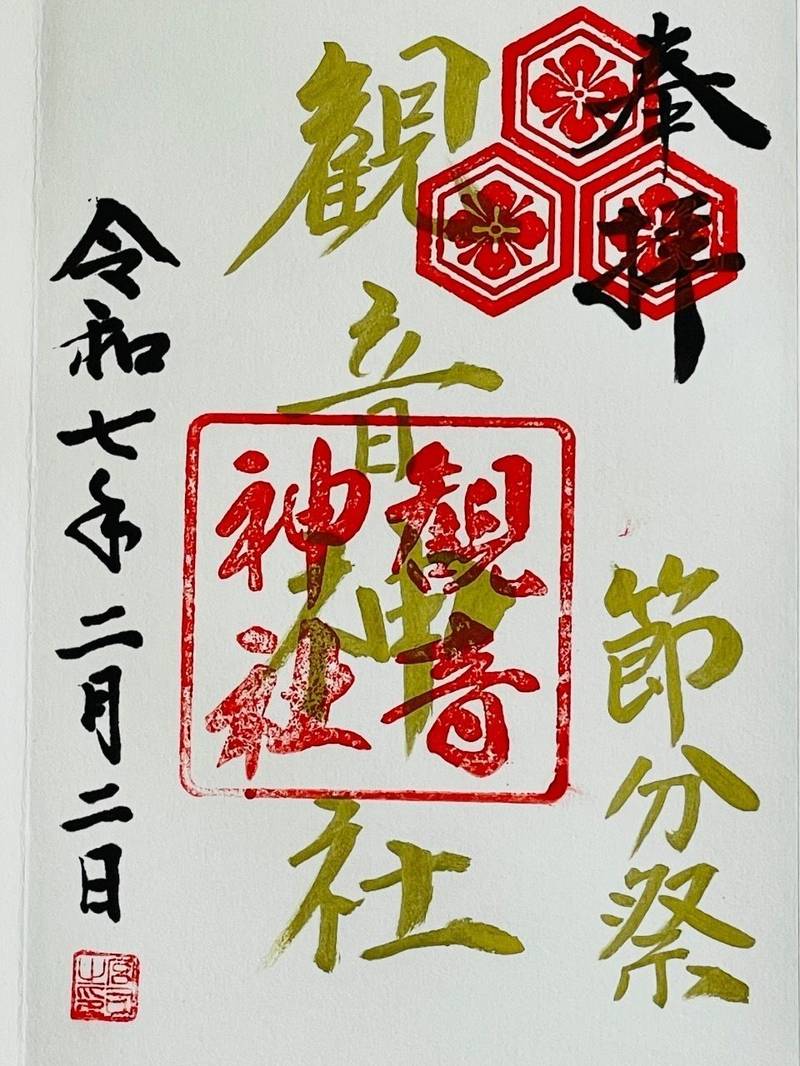 奉拝
節分祭
観音神社
観音
神社
令和七年二月二日
宮司
之印